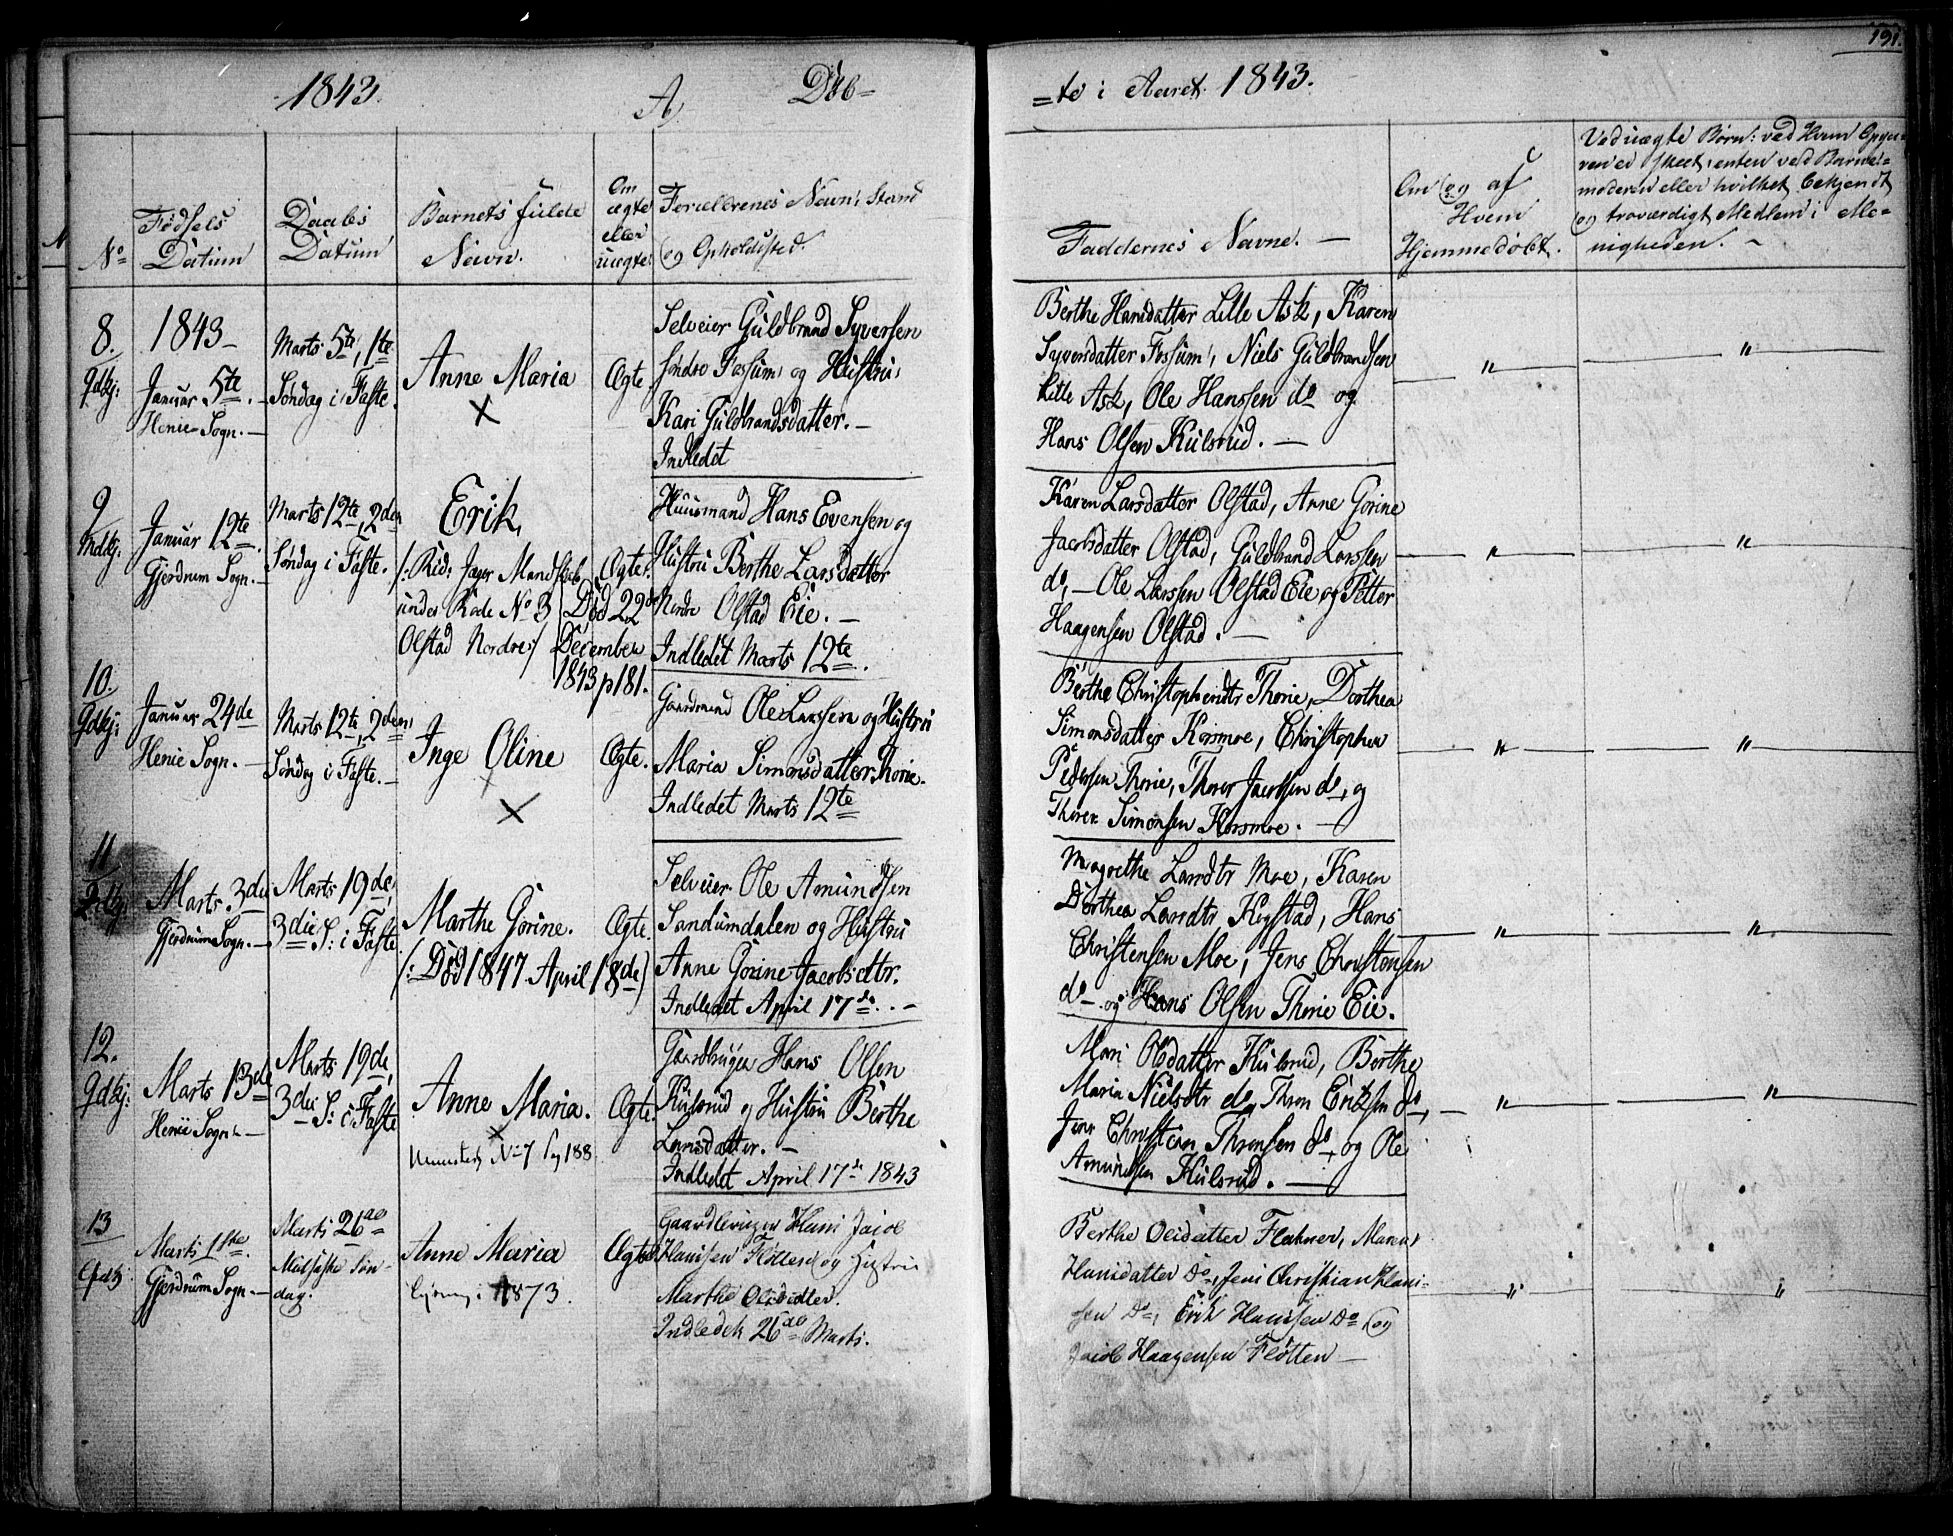 1843.
A
Döb=
=te i Aaret 1843.
191.
No
Fødsels
Datum
Daabs
Datum
Barnets fulde
Navn.
Om
ægte
eller
uægte
Forældrenes Navn, Stand
og Opholdsted.
Faddernes Navne. —
Om og af
Hvem
Hjemmedøbt.
Ved uægte Børn: ved Hvem Opgi-
ven er skeet, enten ved Barne-
moderen eller hvilket bekjendt
og troværdigt Medlem i Me-
nigheden. —
8.
1843—
Januar 5te. —
Henie Sogn. —
Marts 5te, 1te
Søndag i Faste.
Anne Maria
X
Ægte
Selveier Güldbrand Syversen
Søndre Fossum, og Hüstrü,
Kari Güldbrandsdatter. —
Indledet
Berthe Hansdatter Lille Ask, Karen
Syversdatter Fossum, Niels Güldbrandsen
Lille Ask, Ole Hanssen do og
Hans Olsen Külsrud. —
9
Januar 12te.
Gjerdrum Sogn. —
Marts 12te, 2den
Søndag i Faste.
Erik,
/: Rid: Jæger Mandskab
under Rode No 3
Olstad Nordre:/
Ægte.
Död 22de
December
1843 p 181.
Huusmand Hans Evensen og
Hüstrü Berthe Larsdatter
Nordre Olstad Eie. —
Indledet Marts 12te.
Karen Larsdatter Olstad, Anne Gorine
Jacobsdatter Olstad, Güldbrand Larssen
do, — Ole Larssen Olstad Eie og Petter
Haagensen Olstad. —
10.
Januar 24de
Henie Sogn. —
Marts 12te, 2den
Søndag i Faste. —
Inge Oline
X
Ægte.
Gaardmand Ole Larssen og Hüstrü
Maria Simonsdatter Thorie.
Indledet Marts 12te
Berthe Christophersdtr Thorie, Dorthea
Simonsdatter Korsmoe, Christopher
Pedersen Thorie, Thorer Jacobsen do, og
Thorer Simonsen Korsmoe. —
11
Marts 3die
Gjerdrum Sogn. —
Marts 19de,
3die S: i Faste
Marthe Gorine.
/: Död 1847 April 18de)
Ægte.
Selveier Ole Amundsen
Sandumdalen og Hüstrü
Anne Gorine Jacobsdtr.
Indledet April 17de. —
Magrethe Larsdtr Moe, Karen
Dorthea Larsdtr Kogstad, Hans
Christensen Moe, Jens Christensen
do — og Hans Olsen Thorie Eie.
12.
Marts 13de
Henie Sogn. —
Marts 19de,
3die S: i Faste
Anne Maria.
X
No 7 188
Ægte
Gaardbruger Hans Olsen
Külsrud og Hüstrü Berthe
Larsdatter. —
Indledet April 17de 1843
Mari Olsdatter Külsrud, Berthe
Maria Nielsdtr do, Thron Eriksen do,
Jens Christian Thronsen do, og Ole
Amundsen Külsrud. —
13
Marts 1ste.
Gjerdrum Sogn. —
Marts 26de
Midfaste Søn-
dag.
Anne Maria
i 1873.
Ægte
Gaardbruger Hans Jacob
Hansen Fløtten og Hustru
Marthe Olsdatter.
Indledet 26de Marts.
Berthe Olsdatter Flakner, Maren
Hansdatter Do, Jens Christian Han-
sen Do, Erik Hanssen Do og
Jacob Haagensen Fløtten —